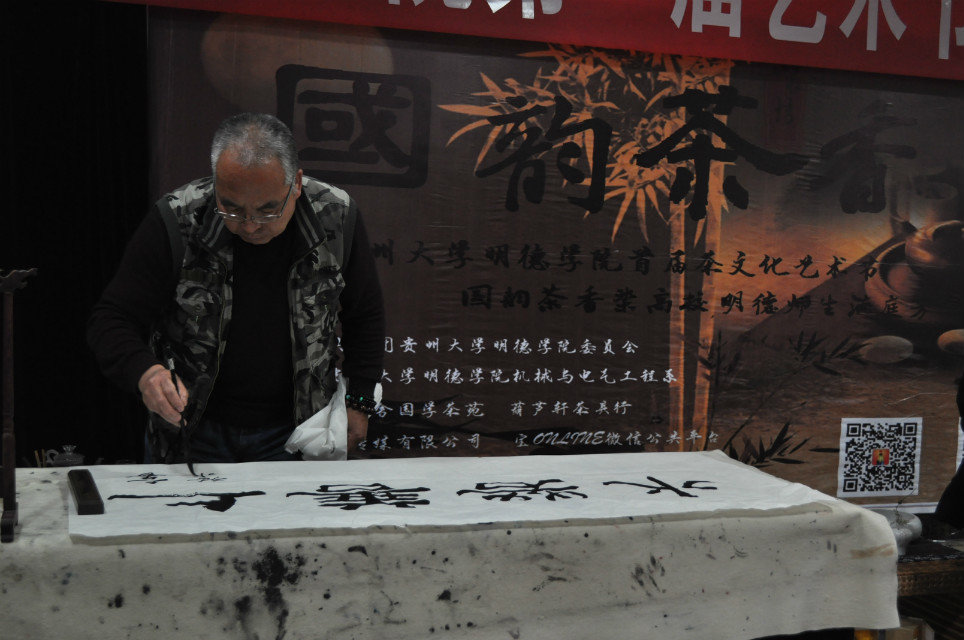 届艺术
國韵茶香
州大学明德学院首届茶文化艺术节
国韵茶香 高校明德师生
团贵州大学明德学院委员会
大学明德学院机械与电气工程系
国学茶苑 葫芦轩茶具行
传媒有限公司 ONLINE微信公共平台
上善若水